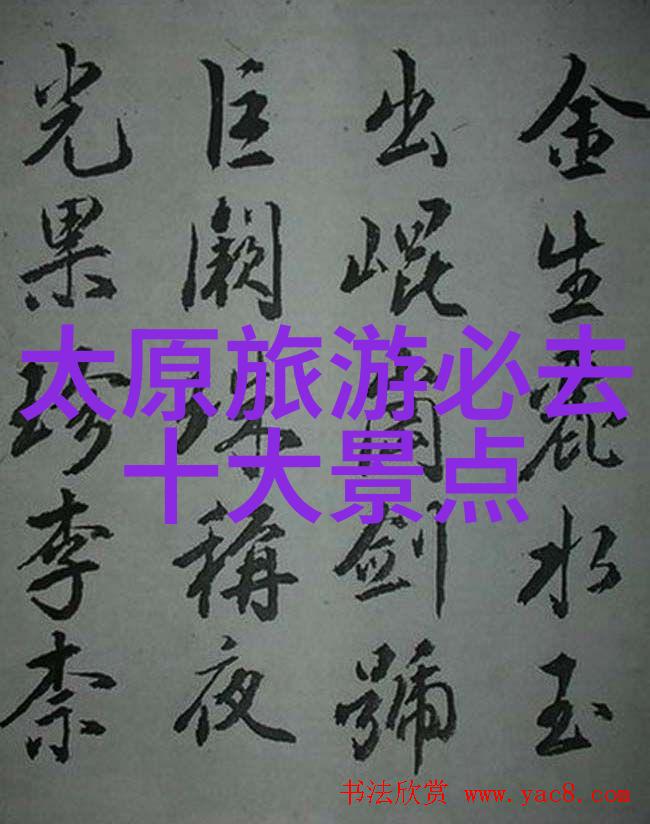 金生麗水玉
出崐岡劍號
巨闕珠稱夜
光果珍李柰
太原旅游必去
十大景点
书法欣赏 www.yac8.com